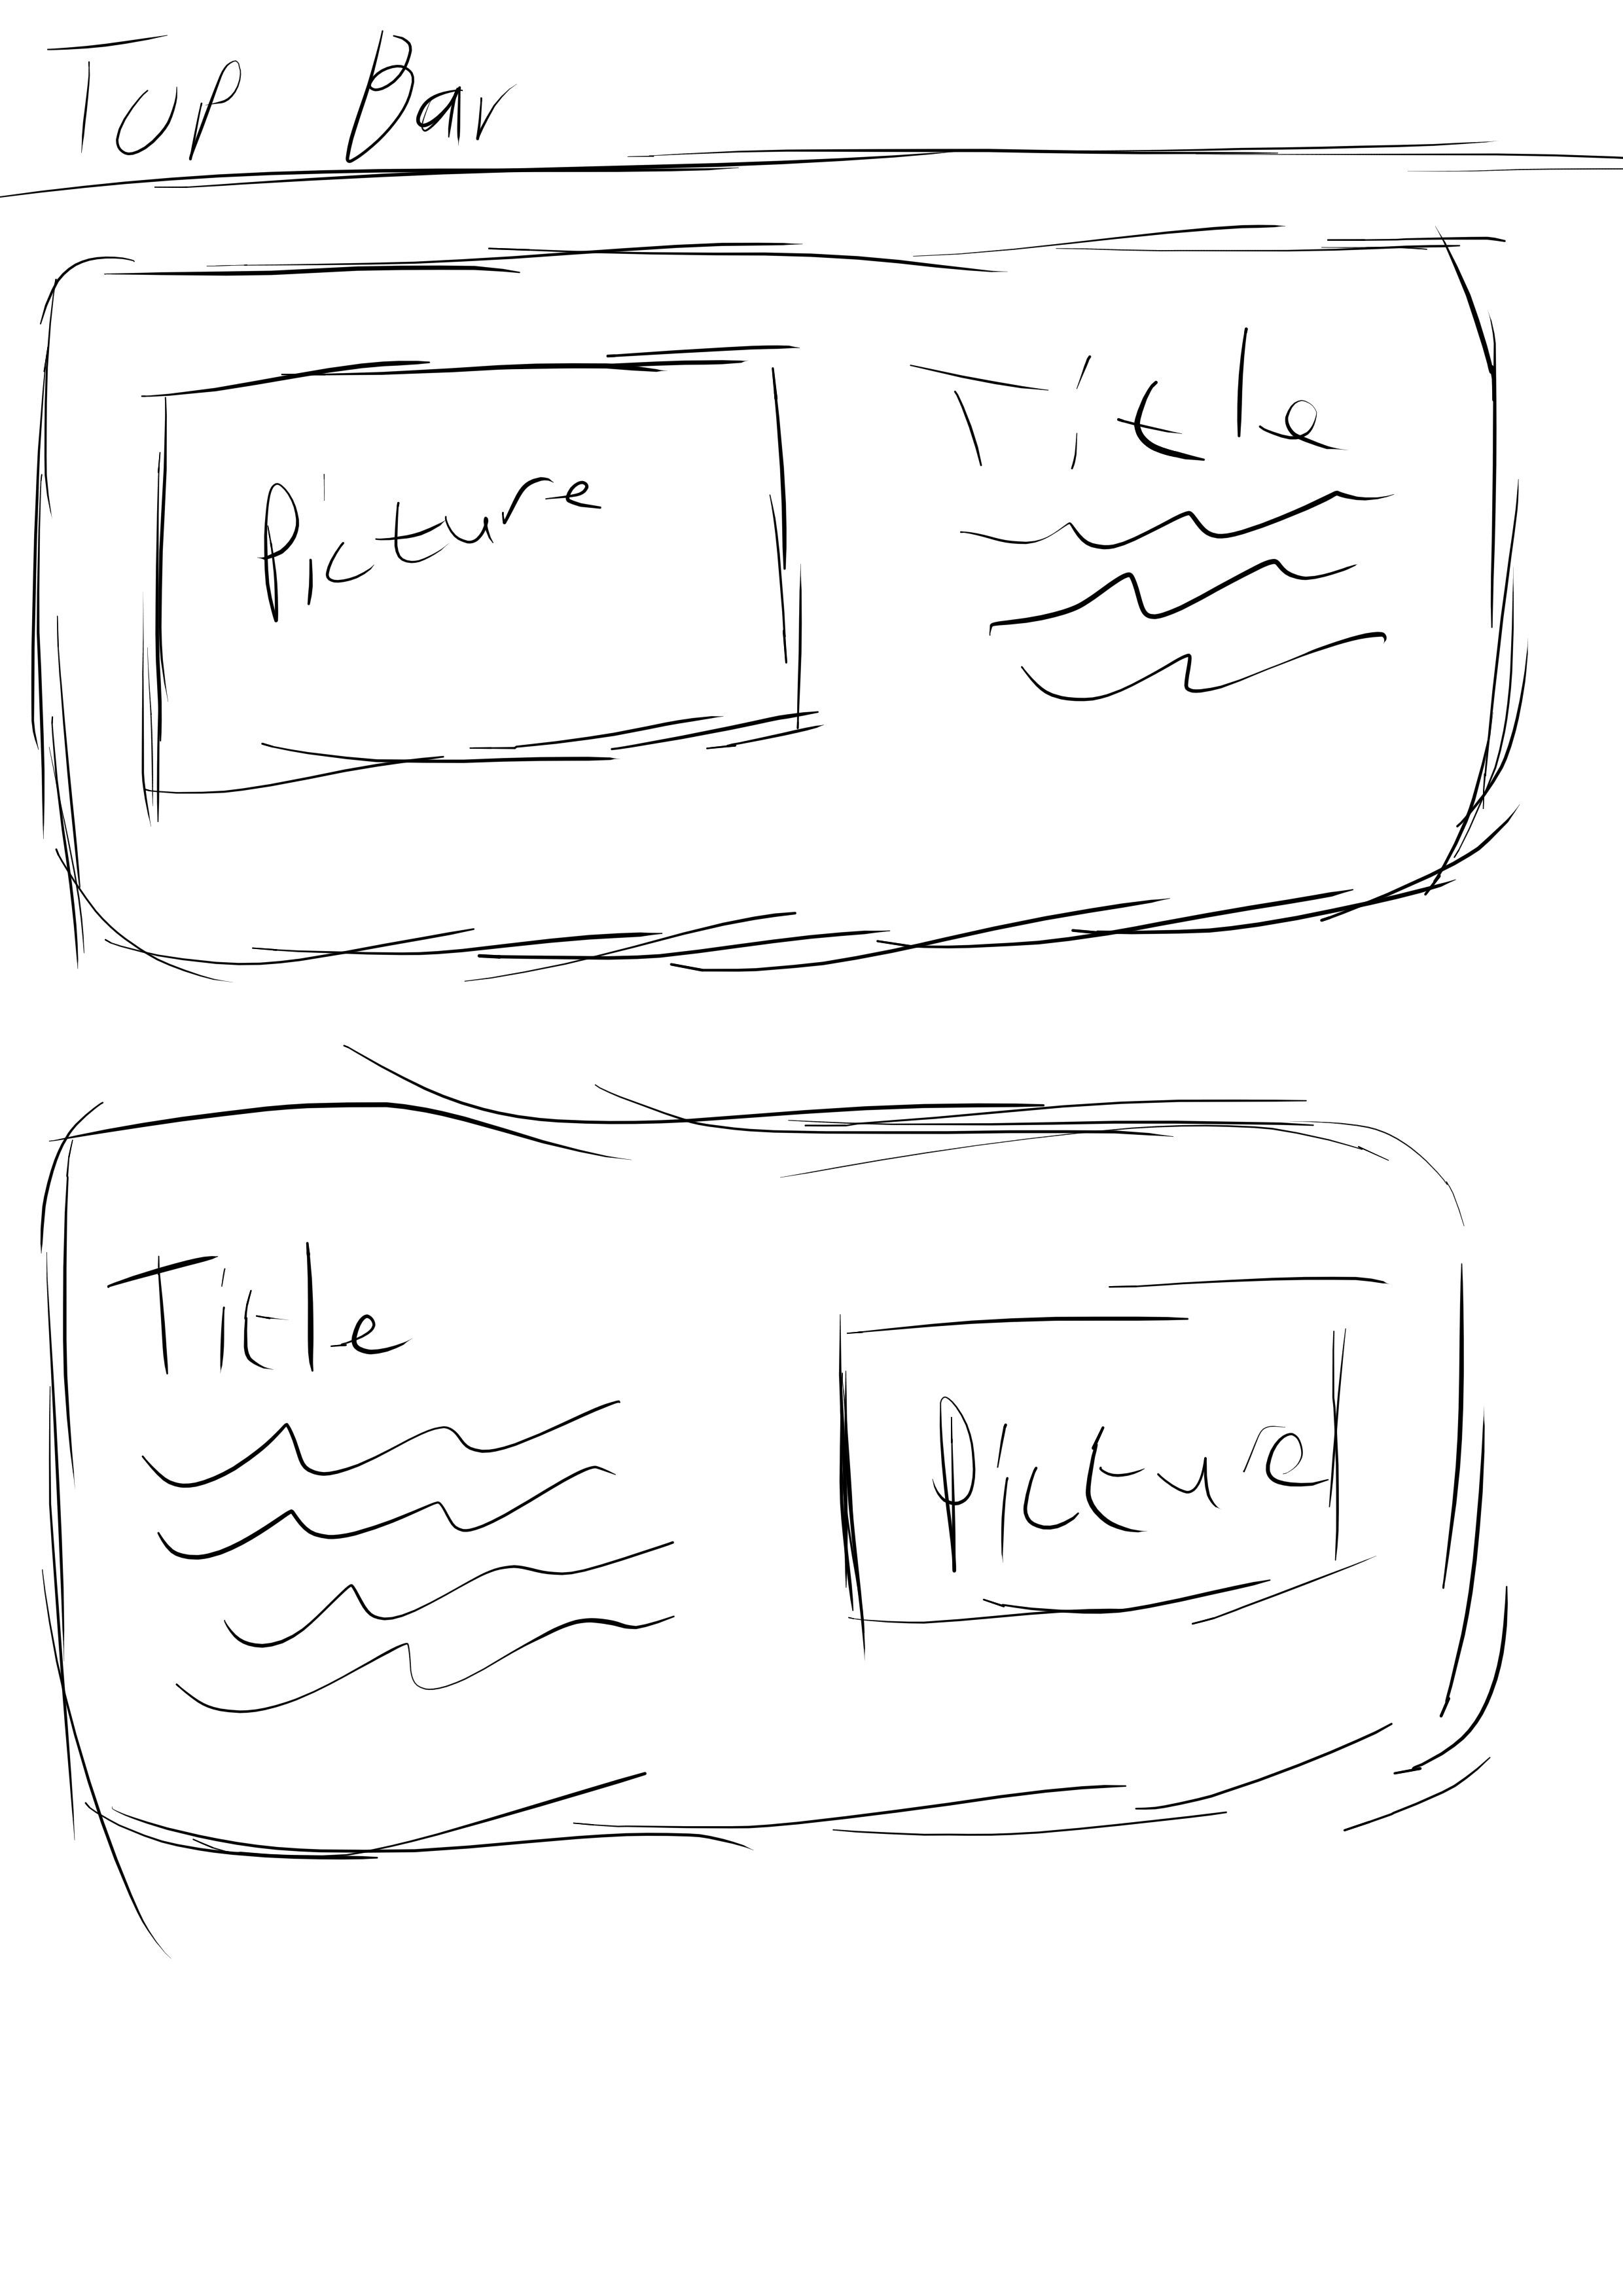 Top Bar
Picture
Title
Title
Picture